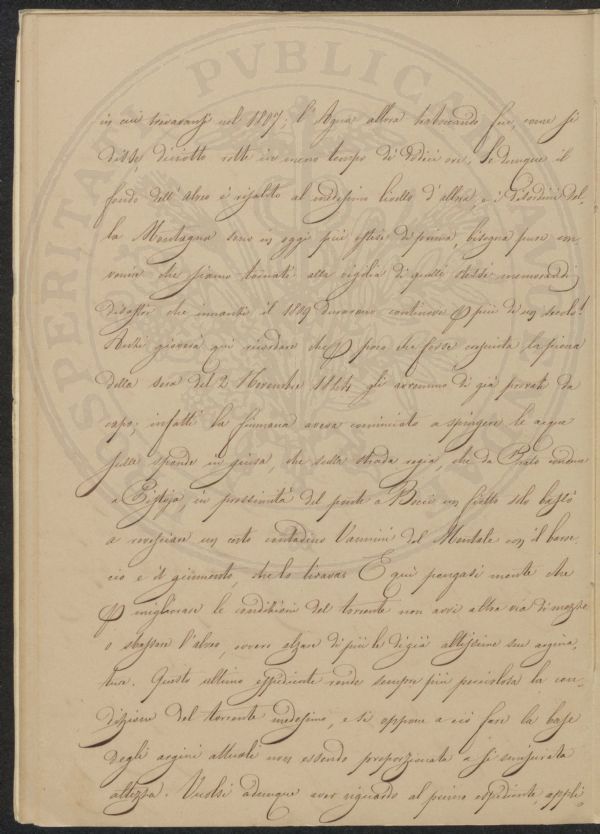 in cui trovavansi nel 1807; l'Aqua allora traboccando fue, come si
disse, diciotto rotte in meno tempo di dodici ore. Se dunque il
fondo dell'alveo è risalito al medesimo livello d'allora, e i disordini del-
la Montagna sono in oggi più estesi di prima, bisogna pure con-
venire che siamo tornati alla vigilia di quelli stessi memorandi
disastri che innanzi il 1809 duravano continovi più di un secolo!
Anzi gioverà qui ricordare che poco che fosse cresciuta la piena
della sera del 2 Novembre 1844 gli avremmo di già provati da
capo; infatti la fiumana aveva cominciato a spingere le acque
sulle sponde in guisa, che sulla strada regia, che da Prato conduce
a Pistoja, in prossimità del ponte a un fiotto solo bastò
a rovesciare un certo contadino Vannini del Montale con il baroc-
cio e il giumento, che lo tirava. E qui pongasi mente che
migliorare le condizioni del torrente non avvi altra via di mezzo
o sbassare l'alveo, ovvero alzare di più le di già altissime sue argina-
ture. Questo ultimo espediente rende sempre più pericolosa la con-
dizione del torrente medesimo, e si oppone a ciò fare la base
degli argini attuali non essendo proporzionata a sì smisurata
altezza. Vuolsi adunque aver riguardo al primo espediente, appli-